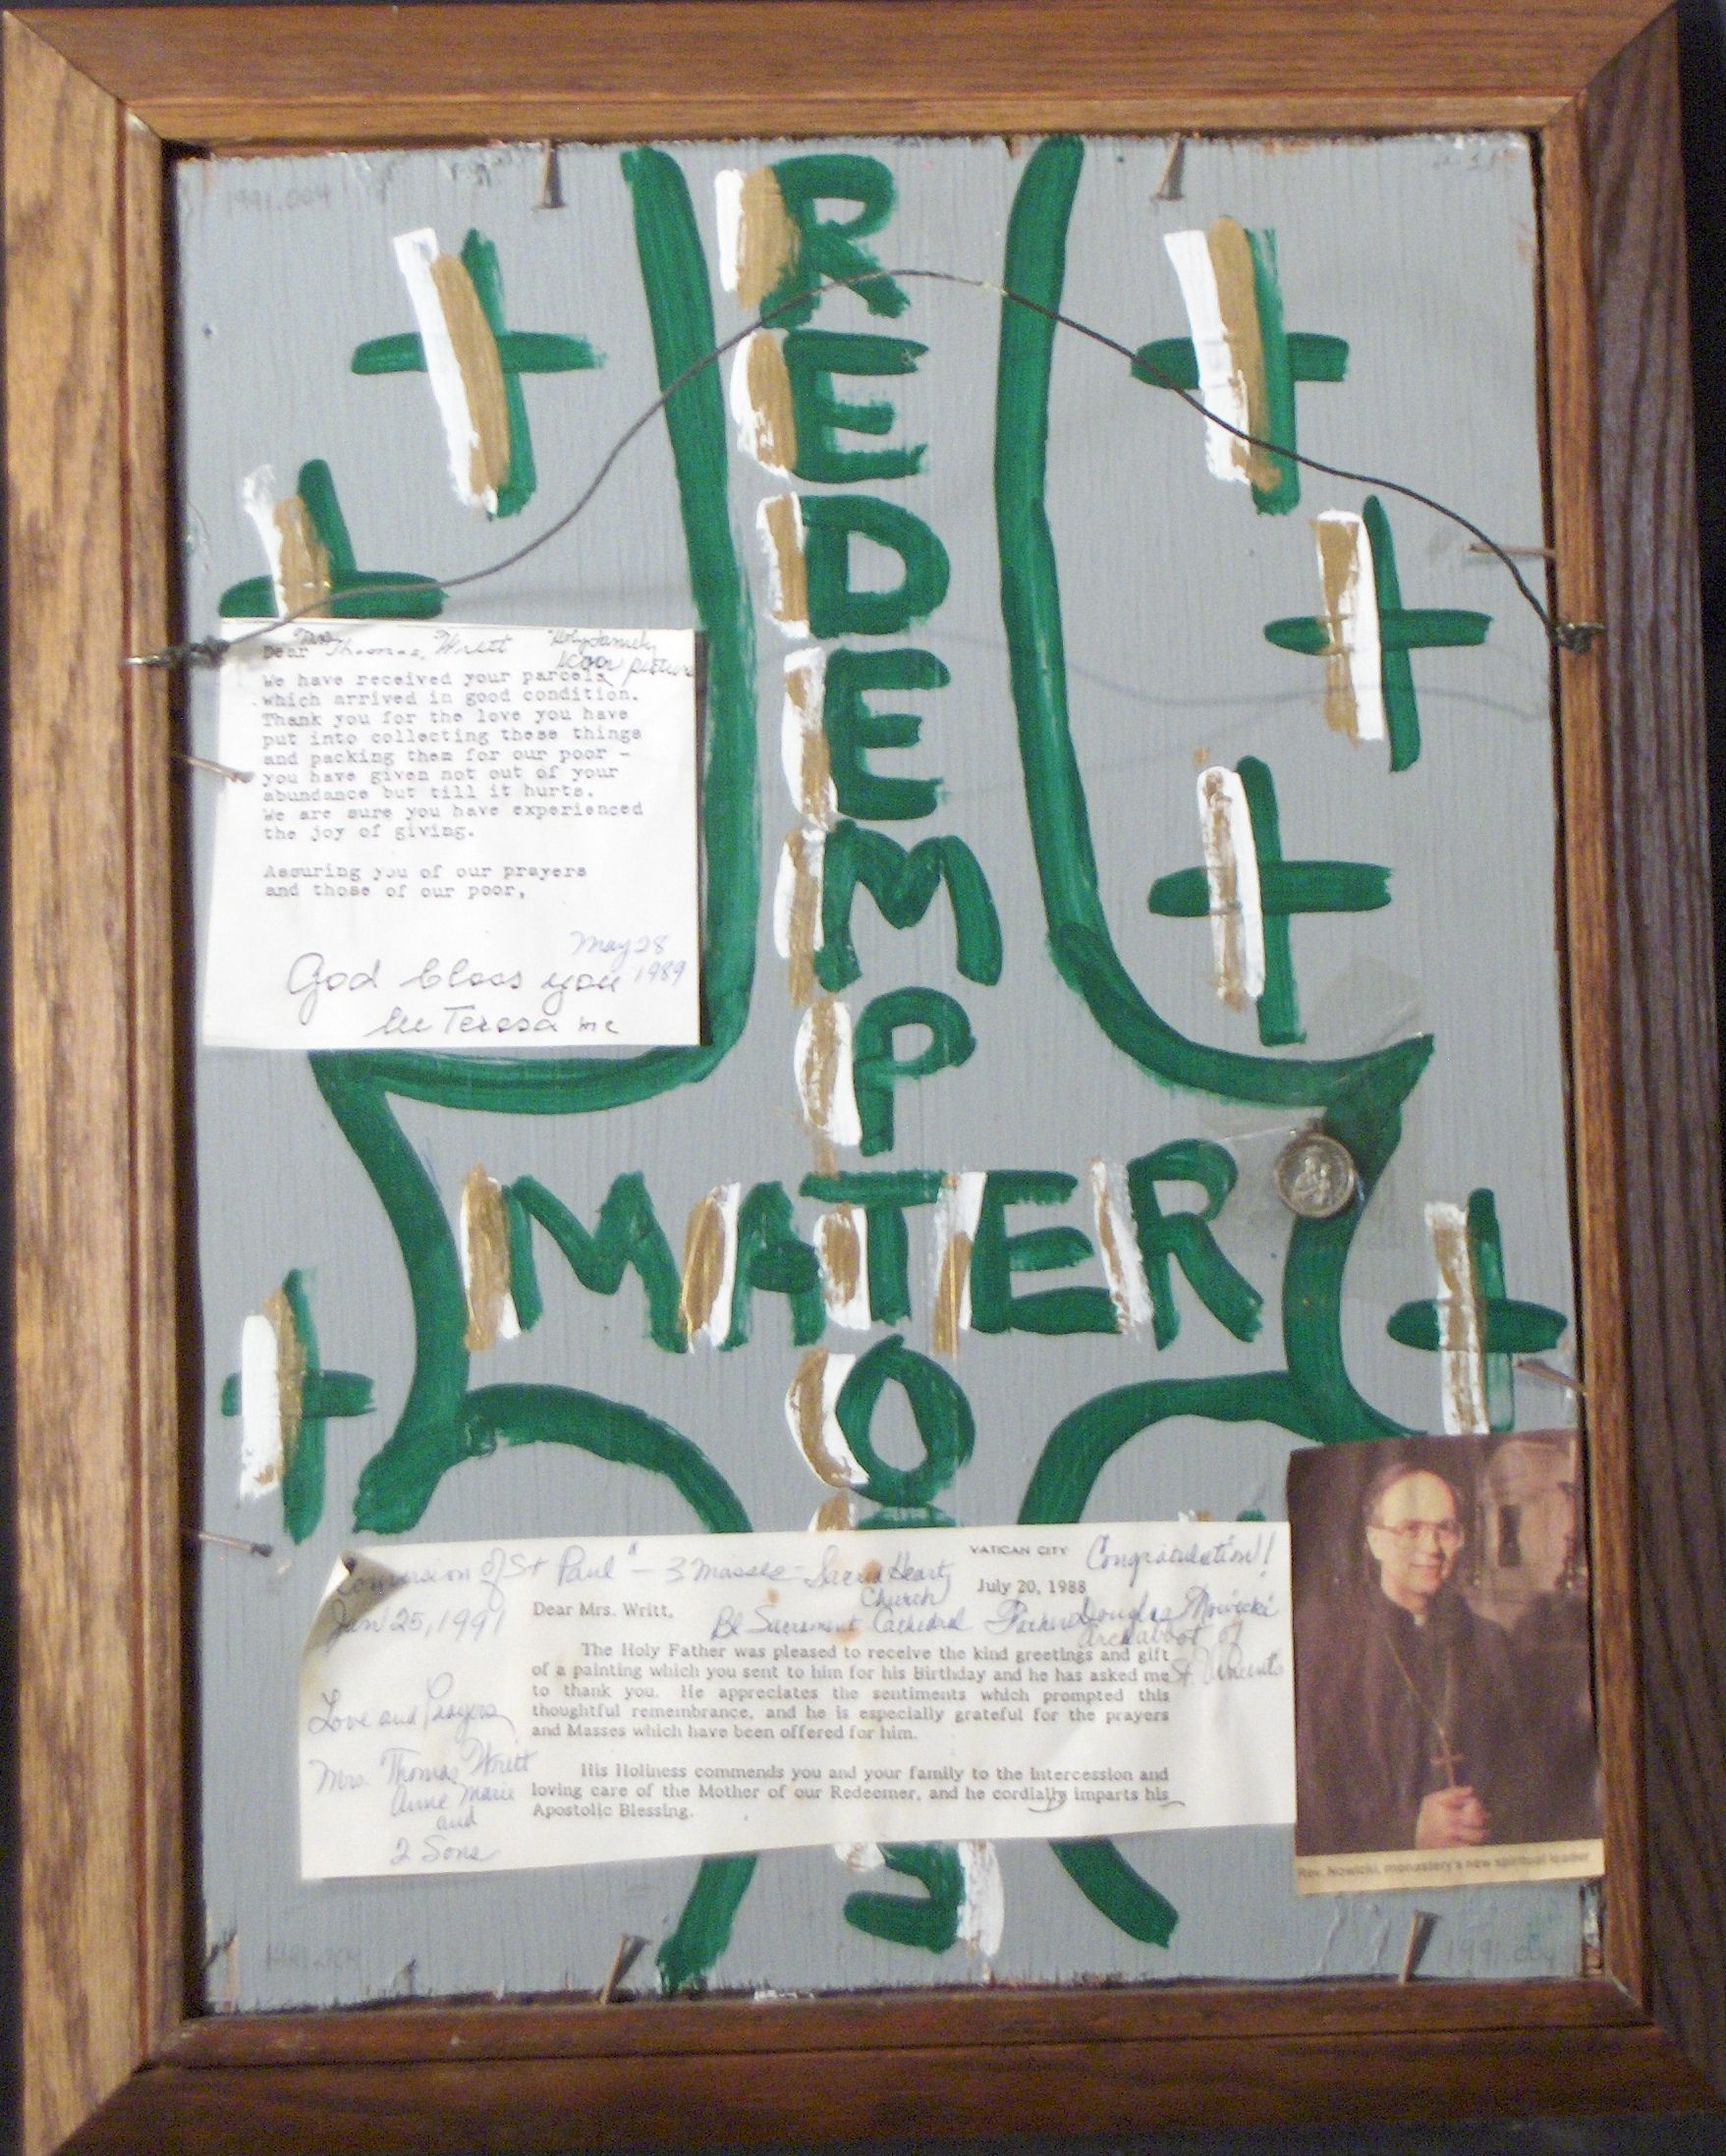 1991.004
REDEMPTO
MATER
S
Dear Mrs Thomas Writt "Holy Family
Icon picture
We have received your parcels
which arrived in good condition.
Thank you for the love you have
put into collecting these things
and packing them for our poor -
you have given not out of your
abundance but till it hurts.
We are sure you have experienced
the joy of giving.
Assuring you of our prayers
and those of our poor,
May 28
1989
God bless you
lle Teresa mc
Conversion of St Paul" - 3 Masses - Sacred Heart
Church
Jan 25, 1991
Bl Sacrament Cathedral
VATICAN CITY
Congratulation!!
July 20, 1988
Father Douglas Nowicki
Archabbot of
St. Vincent's
Dear Mrs. Writt,
The Holy Father was pleased to receive the kind greetings and gift
of a painting which you sent to him for his Birthday and he has asked me
to thank you. He appreciates the sentiments which prompted this
thoughtful remembrance, and he is especially grateful for the prayers
and Masses which have been offered for him.
His Holiness commends you and your family to the intercession and
loving care of the Mother of our Redeemer, and he cordially imparts his
Apostolic Blessing.
Love and Prayers
Mrs. Thomas Writt
Anne Marie
and
2 Sons
Rev. Nowicki, monastery's new spiritual leader